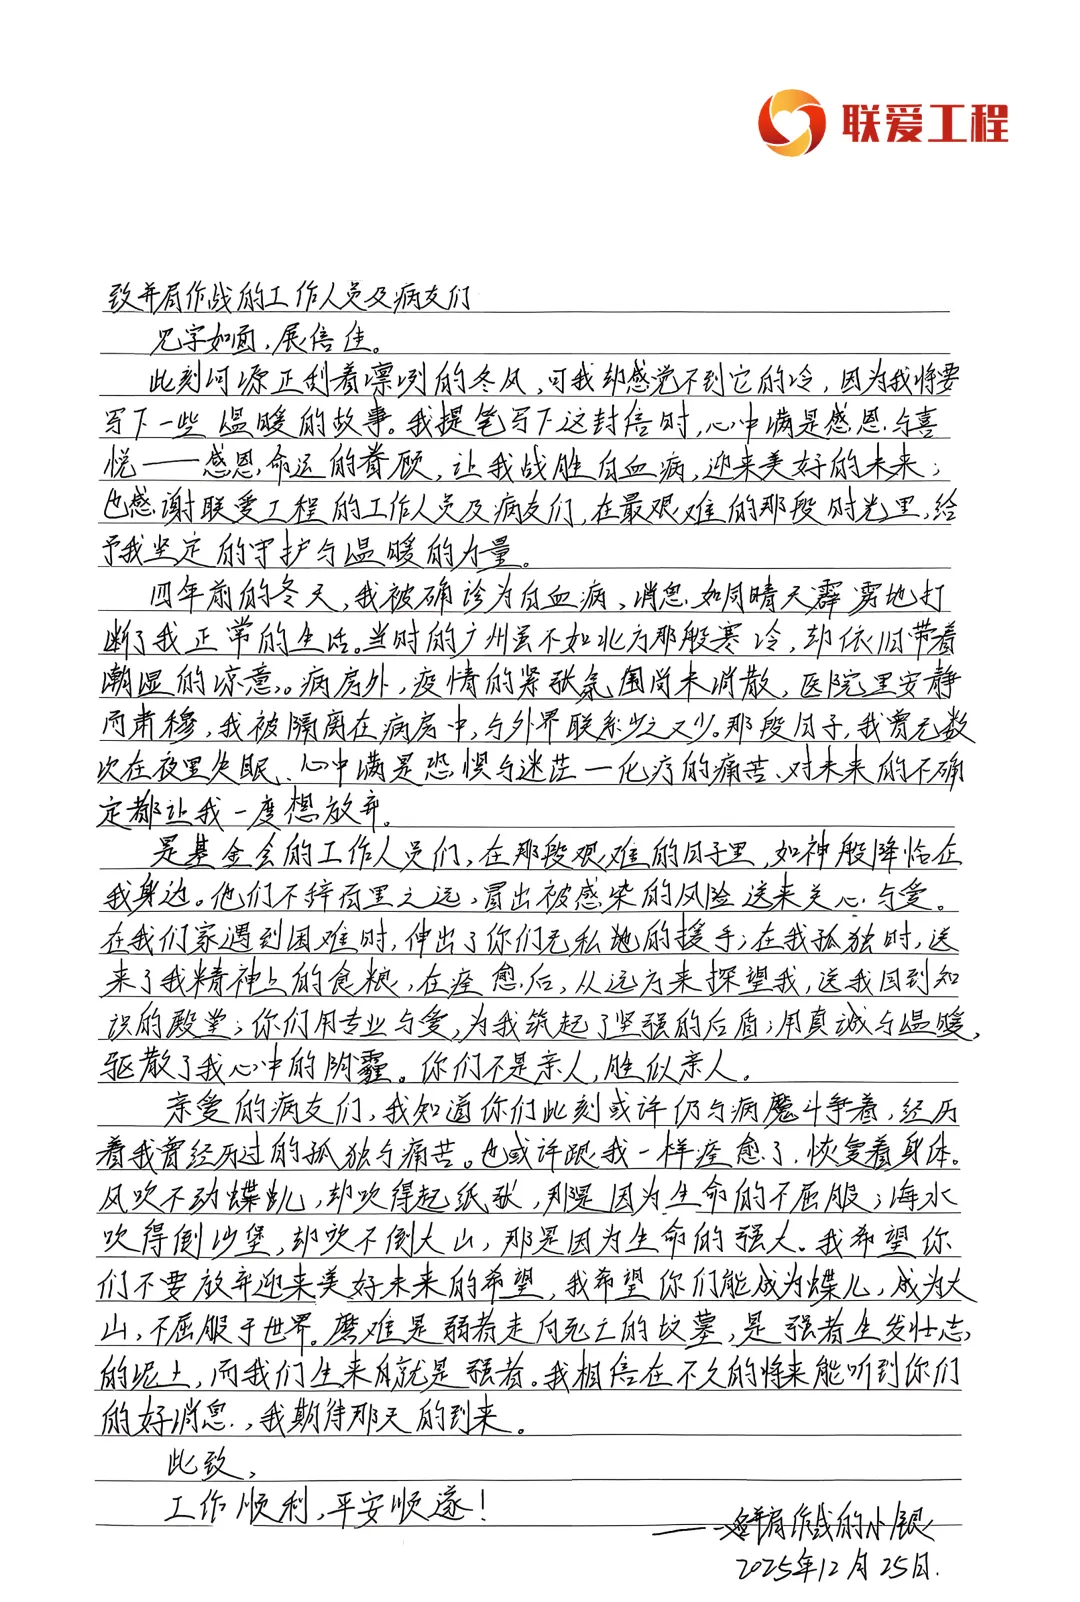 联爱工程
致并肩作战的工作人员及病友们
见字如面,展信佳。
此刻河源正刮着凛冽的冬风,可我却感觉不到它的冷,因为我将要
写下一些温暖的故事。我提笔写下这封信时,心中满是感恩与喜
悦——感恩命运的眷顾,让我战胜白血病,迎来美好的未来;
也感谢联爱工程的工作人员及病友们,在最艰难的那段时光里,给
予我坚定的守护与温暖的力量。
四年前的冬天,我被确诊为白血病,消息如同晴天霹雳地打
断了我正常的生活。当时的广州虽不如北方那般寒冷,却依旧带着
潮湿的凉意。病房外,疫情的紧张氛围尚未消散,医院里安静
而肃穆,我被隔离在病房中,与外界联系少之又少。那段日子,我曾无数
次在夜里失眠、心中满是恐惧与迷茫—化疗的痛苦、对未来的不确
定都让我一度想放弃。
是基金会的工作人员们,在那段艰难的日子里,如神般降临在
我身边。他们不辞百里之远,冒出被感染的风险送来关心与爱。
在我们家遇到困难时,伸出了你们无私地的援手;在我孤独时,送
来了我精神上的食粮,在痊愈后,从远方来探望我,送我回到知
识的殿堂;你们用专业与爱,为我筑起了坚强的后盾;用真诚与温暖,
驱散了我心中的阴霾。你们不是亲人,胜似亲人。
亲爱的病友们,我知道你们此刻或许仍与病魔斗争着,经历
着我曾经历过的孤独与痛苦。也或许跟我一样痊愈了,恢复着身体。
风吹不动蝶儿,却吹得起纸张,那是因为生命的不屈服;海水
吹得倒沙堡,却吹不倒大山,那是因为生命的强大。我希望你
们不要放弃迎来美好未来的希望,我希望你们能成为蝶儿,成为大
山,不屈服于世界。磨难是弱者走向死亡的坟墓,是强者生发壮志
的泥土,而我们生来自就是强者。我相信在不久的将来能听到你们
的好消息,我期待那天的到来。
此致,
工作顺利,平安顺遂!
——并肩作战的小银
2025年12月25日.